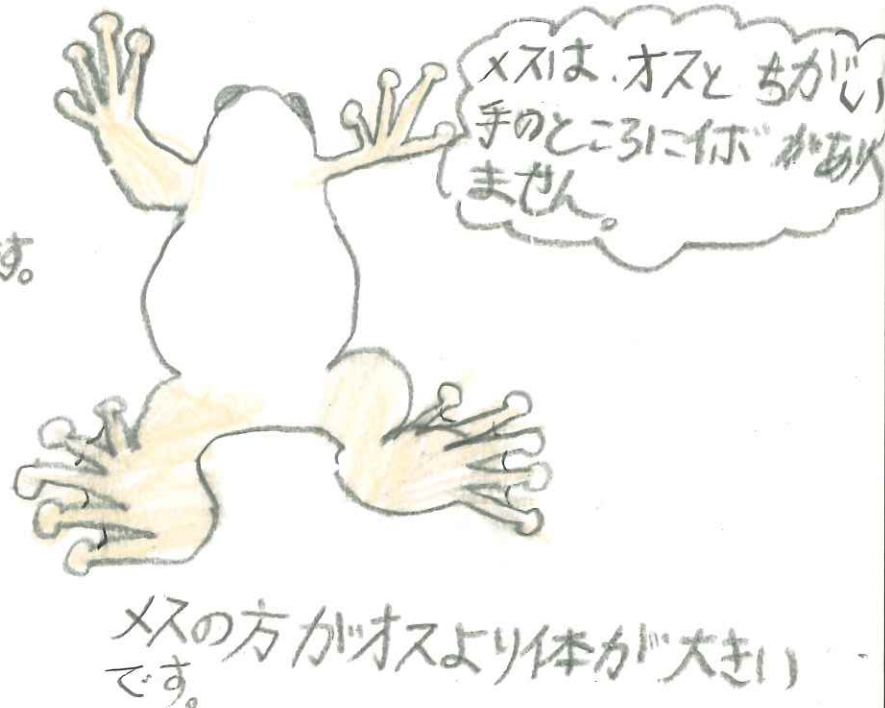 メスは、オスとちがい
手のところにイボがあり
ません。
す。
メスの方がオスより体が大きい
です。